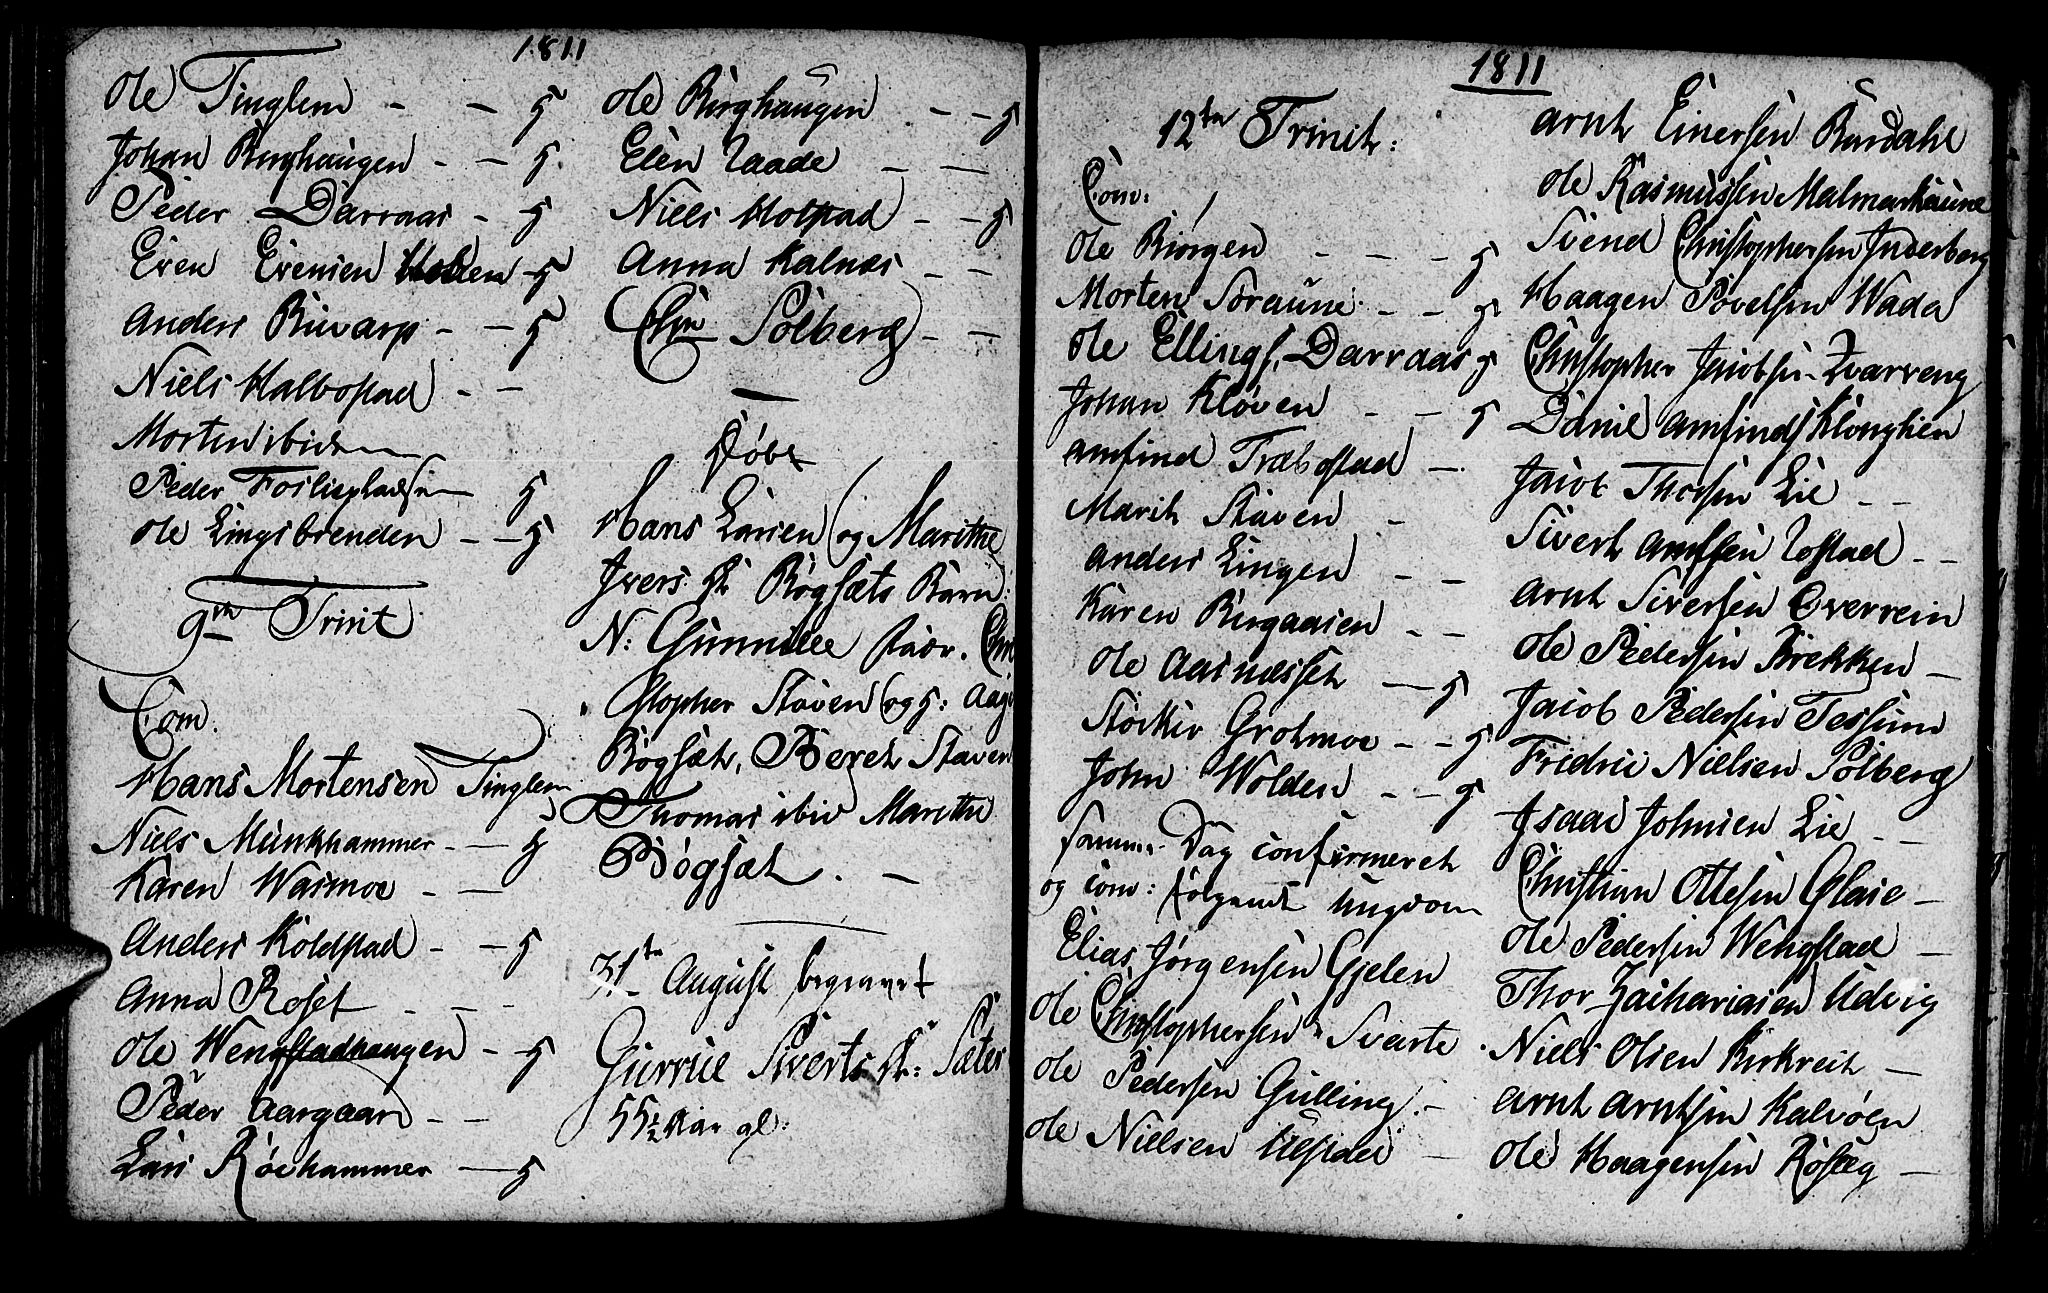 1811
Ole Tinglem - - g
Johan Berghaugen - - g.
Peder Darraas - g
Even Evensen Holden - g
Anders Buvarp - - g
Niels Halbostad - -
Morten ibidem
Peder Forliepladsen g
Ole Lingsbrenden - - g
9de Trinit
Com.
Hans Mortensen Tinglem
Niels Munkhammer - - g
Karen Warmoe - -
Anders Koldstad - - g
Anna Roset - -
Ole Wengstadhaugen - g
Peder Aargaard - -
Lars Røehammer - g
Ole Berghaugen - - g
Elen Zaade - -
Niels Holstad - - g
Anna Kalnes - -
Chrn Solberg - -
Døbt
Hans Larsen og Marithe
Ivers Dr Bøgsæts Barn:
N: Gunnille Faddr. Chri
stopher Staven og H: Aage
Bøgsæt, Beret Staven
Thomas ibid Marithe
Bøgsæt. -
31te August begravet
Gurrue Siverts Dr: Sæter
55½ Aar gl:
1811
12te Trinit:
Com:
Ole Biørgen - - - g
Morten Soraune - - g
Ole Ellings. Darraas g
Johan Kløven - - g
Arnfind Træbostad -
Marit Staven -
Anders Lingen - -
Karen Birgaasen - -
Ole Aasnæsset - g
Størker Grotmoe - - g
John Wolden - - g
samme Dag confirmeret
og com: følgende ungdom
Elias Jørgensen Gjelen
Ole Christophersen Svarte
Ole Pedersen Gulling. -
Ole Nielsen Ulstad -
Arnt Einersen Burdahl
Ole Rasmussen Malmarhaune
Svend Christophersen Inderberg
Haagen Povelsen Wada
Christopher Jacobsen Zvarveng
Daniel Arnfinds Klonglien
Jacob Thorsen Lie - -
Sivert Arntsen Zostad - -
Arnt Siversen Overrein
Ole Pedersen Brekken -
Jacob Pedersen Tessum
Fridric Nielsen Solberg
Isaac Johnsen Lie -
Christian Ottesen Glase -
Ole Pedersen Wengstad -
Thor Zachariasen Udvig
Niels Olsen Kirkreit -
Arnt Arntsen Kalvøen
Ole Haagensen Røseg -